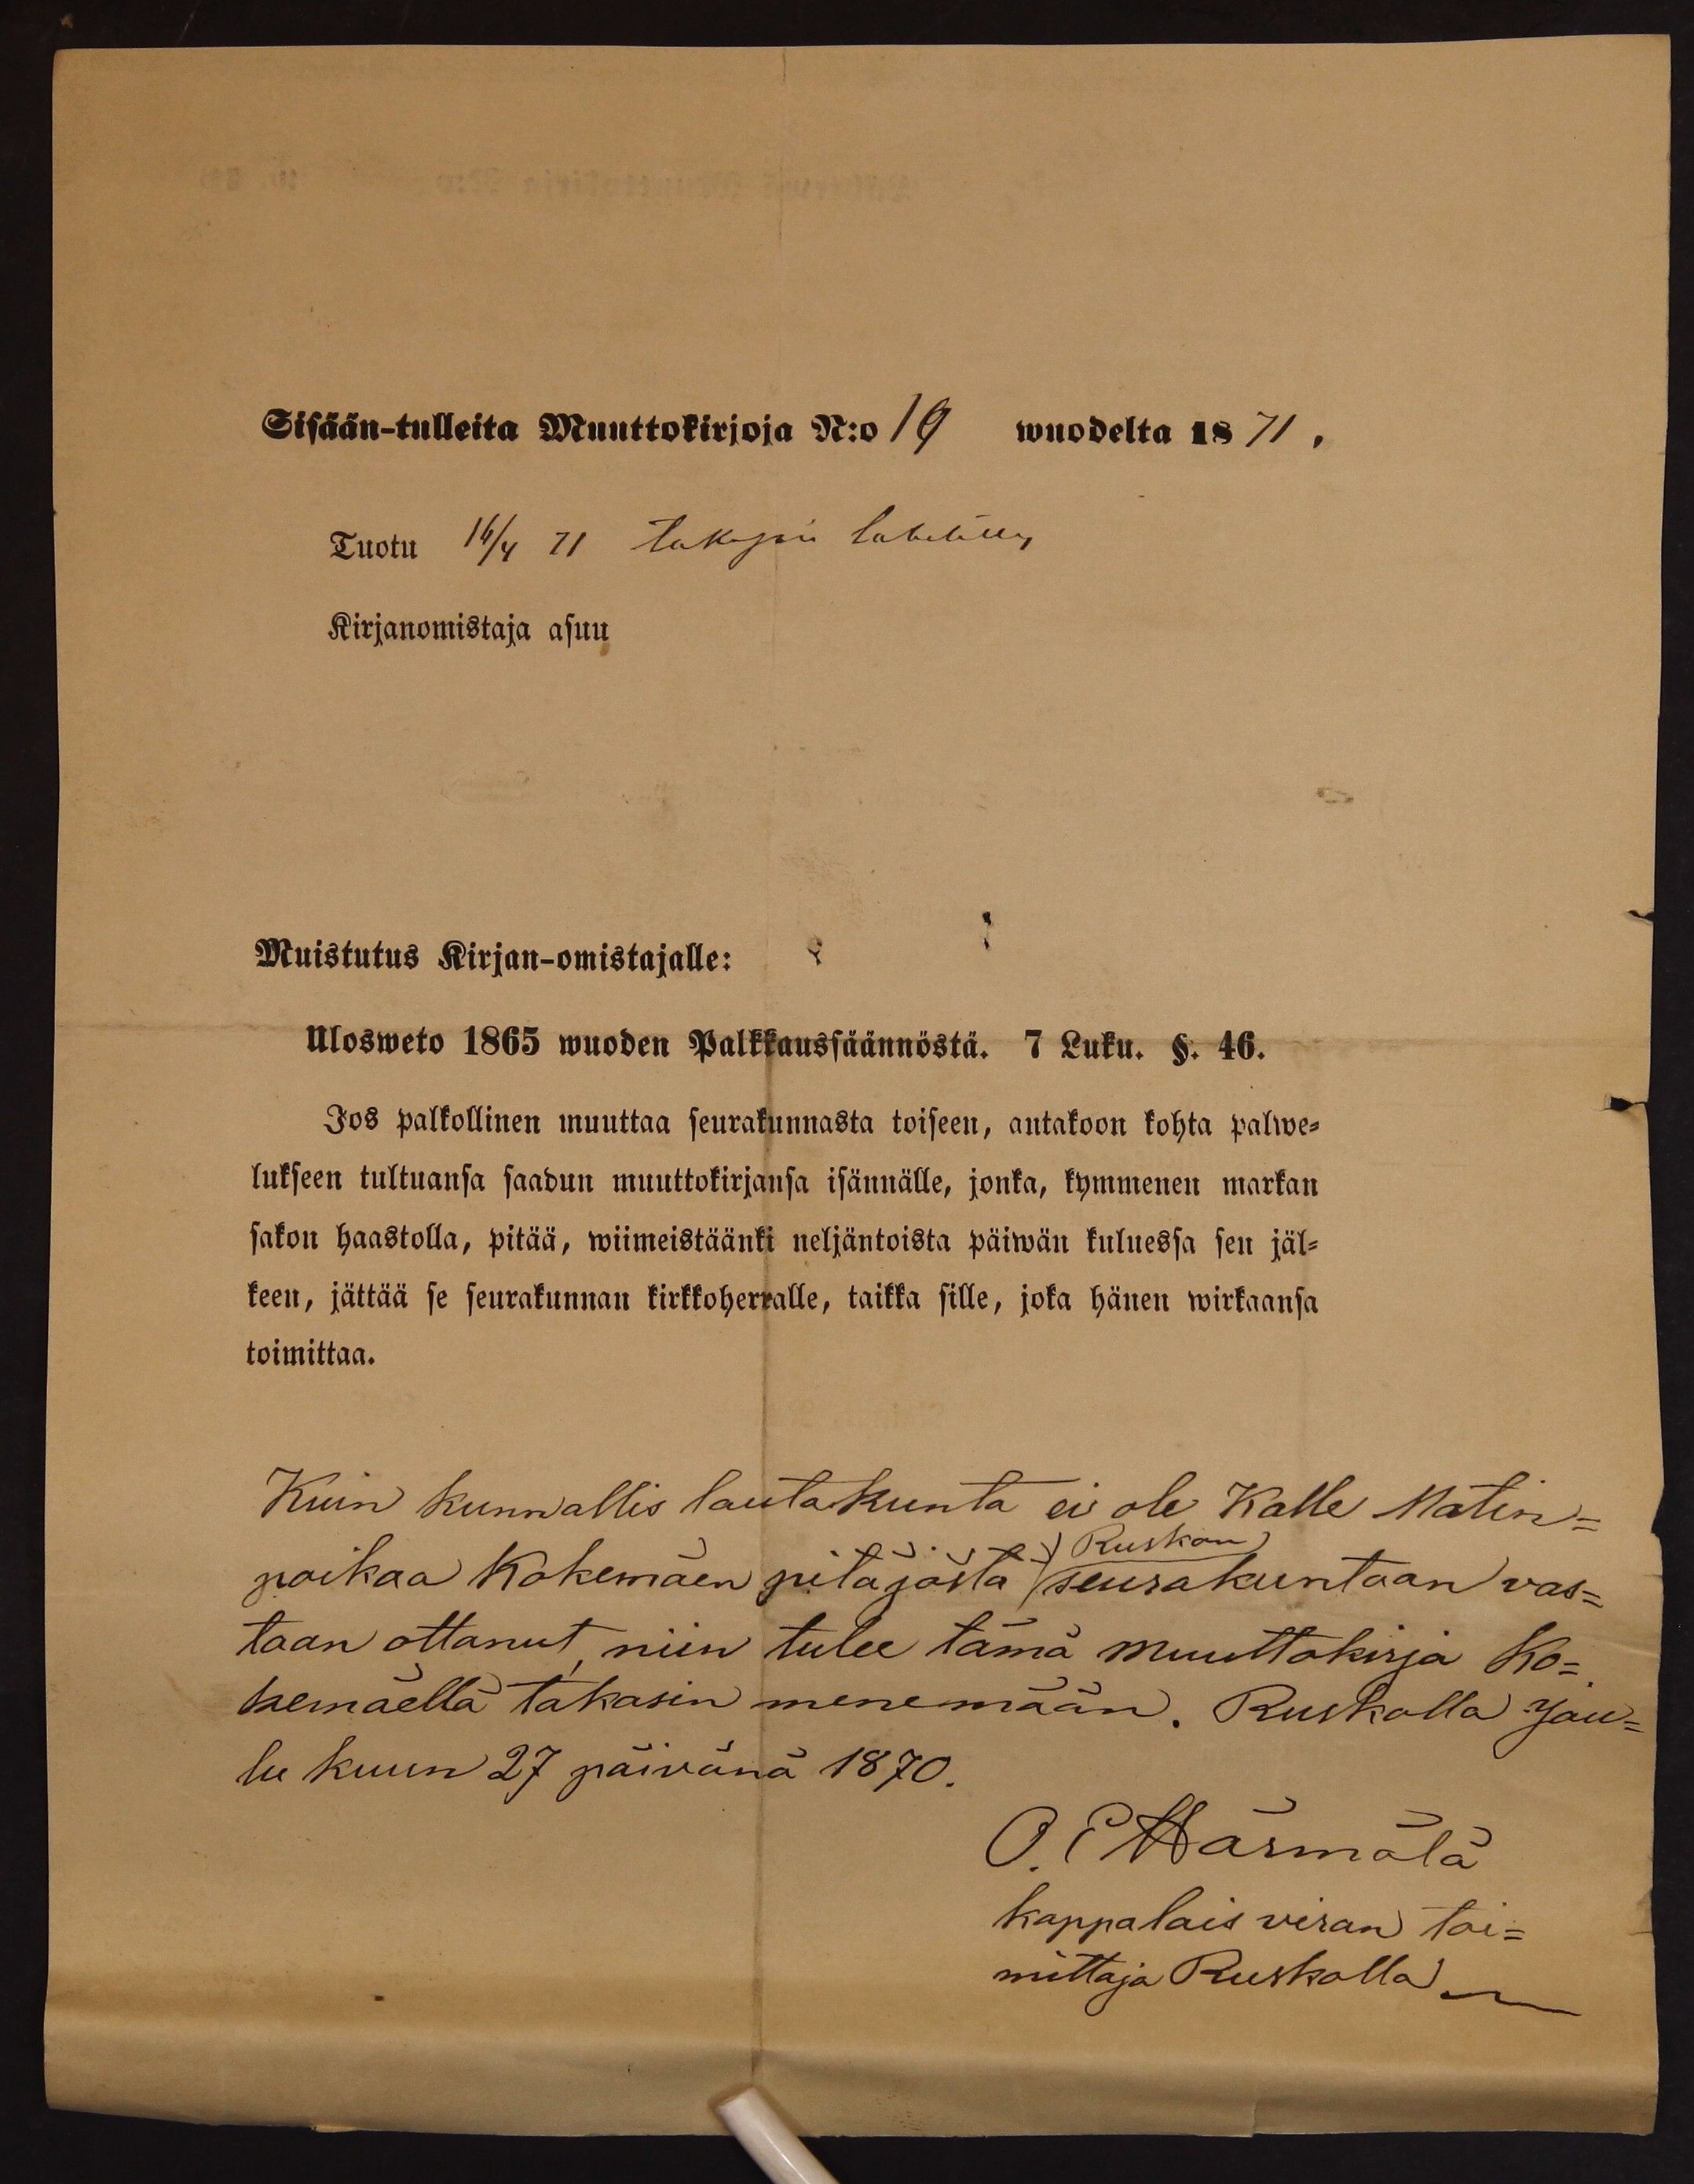 Sisään-tulleita Muuttokirjoja N:o 19 wuodelta 1871.
Tuotu 16/4 71 takasin lähetetty
Kirjanomistaja asuu
Muistutus Kirjan-omistajalle:
Ulosweto 1865 wuoden Palkkaussäännöstä. 7 Luku. §. 46.
Jos palkollinen muuttaa seurakunnasta toiseen, antakoon kohta palwe=
lukseen tultuansa saadun muuttokirjansa isännälle, jonka, kymmenen markan
sakon haastolla, pitää, wiimeistäänki neljäntoista päiwän kuluessa sen jäl=
keen, jättää se seurakunnan kirkkoherralle, taikka sille, joka hänen wirkaansa
toimittaa.
Kuin kunnallis lautakunta ei ole Kalle Matin=
poikaa Kokemäen pitäjästä Ruskon seurakuntaan vas=
taan ottanut, niin tulee tämä muuttokirja Ko=
kemäellä takasin menemään. Ruskolla Jou=
lu kuun 27 päivänä 1870.
O. E Härmälä
kappalais viran toi=
mittaja Ruskolla